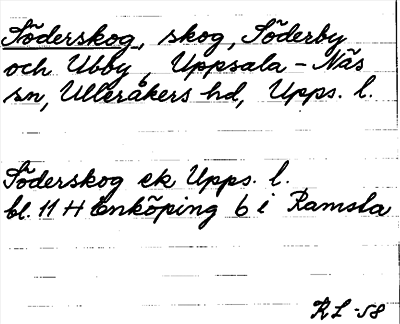 Söderskog, skog, Söderby
och Ubby, Uppsala-Näs
sn, Ulleråkers hd, Upps. l.
Söderskog ek Upps. l.
bl. 11 H Enköping 6 i Ramsta
RL -58